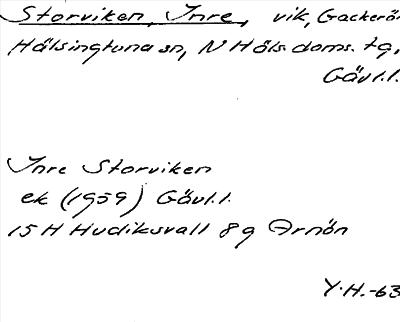 Storviken, Inre, vik, Gackerön
Hälsingtuna sn, N Häls. doms. tg,
Gävl.l.
Inre Storviken
ek (1959) Gävl.l.
15 H Hudiksvall 8 g Arnön
Y.H.-63